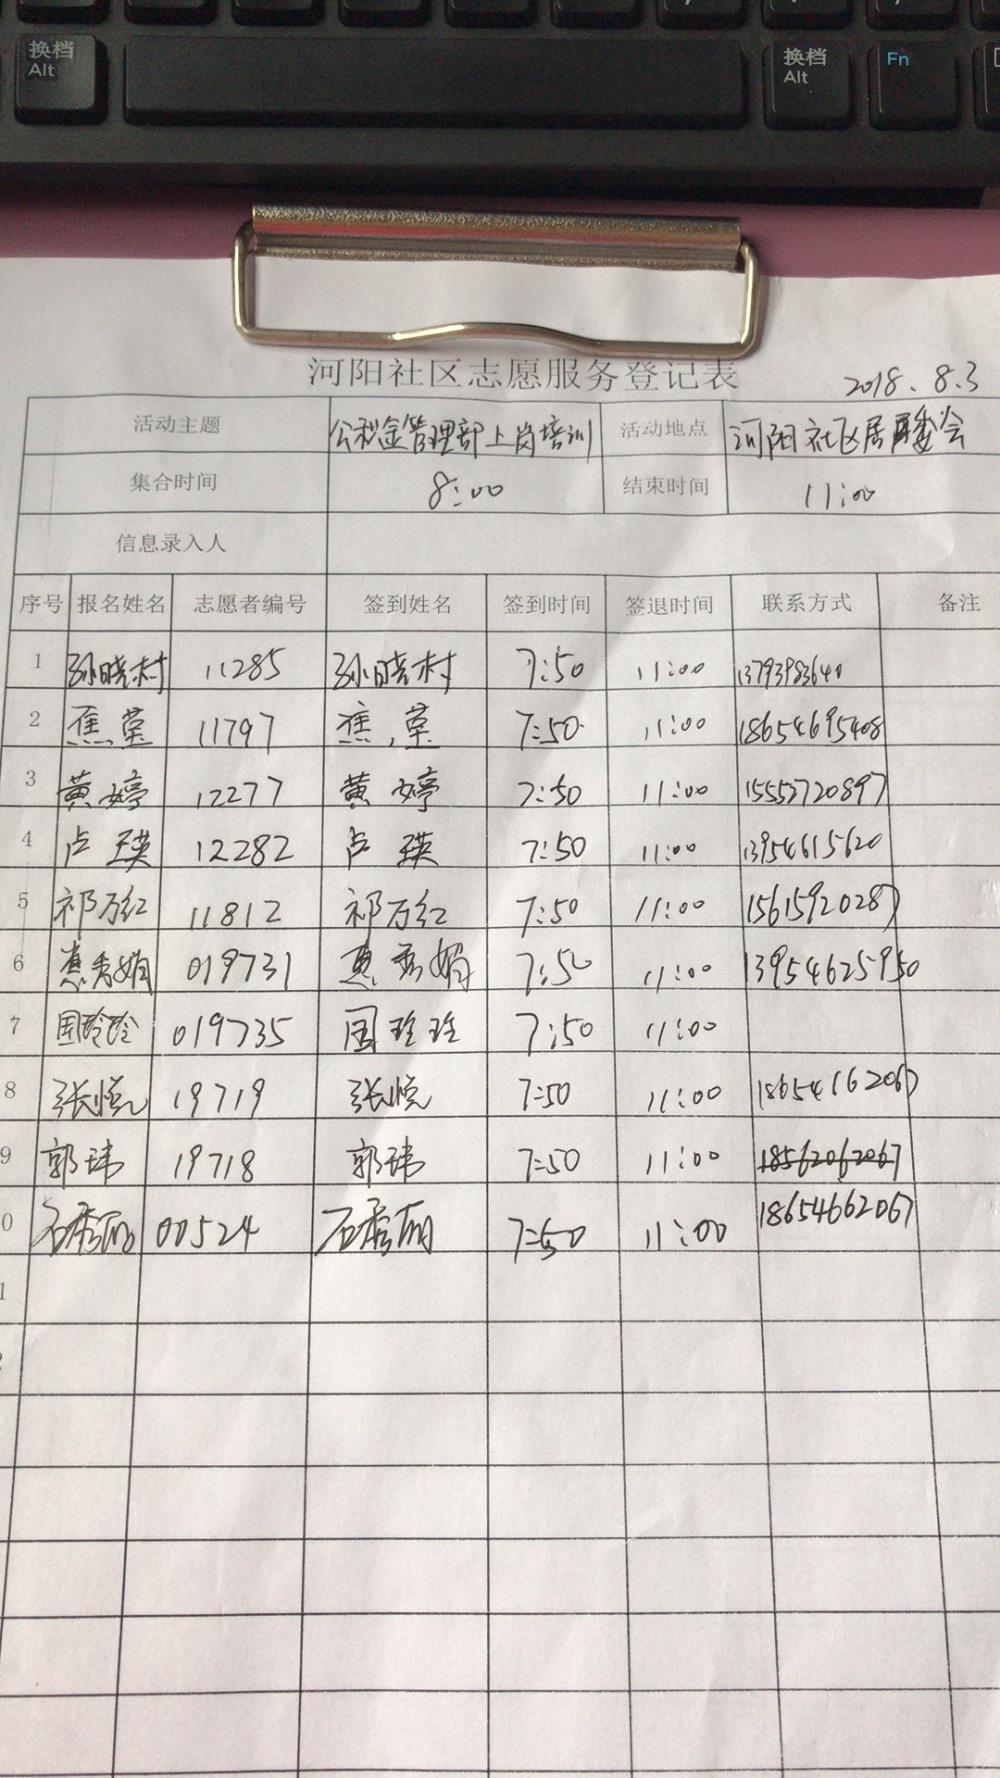 换档
Alt
换档
Alt
Fn
河阳社区志愿服务登记表
2018.8.3
活动主题 公积金管理部上岗培训 活动地点 河阳社区居委会
集合时间 8:00 结束时间 11:00
信息录入人
序号 报名姓名 志愿者编号 签到姓名 签到时间 签退时间 联系方式 备注
1 孙晓村 11285 孙晓村 7:50 11:00 13793983640
2 11797 7:50 11:00 18654695408
3 黄婷 12277 黄婷 7:50 11:00 15552720897
4 卢瑛 12282 卢瑛 7:50 11:00 13954615620
5 祁万红 11812 祁万红 7:50 11:00 15615920287
6 惠秀娟 019731 惠秀娟 7:50 11:00 13954625950
7 国玲玲 019735 国玲玲 7:50 11:00
8 张悦 19719 张悦 7:50 11:00 18654162067
9 郭玮 19718 郭玮 7:50 11:00 18562062067
0 石秀丽 00524 石秀丽 7:50 11:00 18654662067
1
2